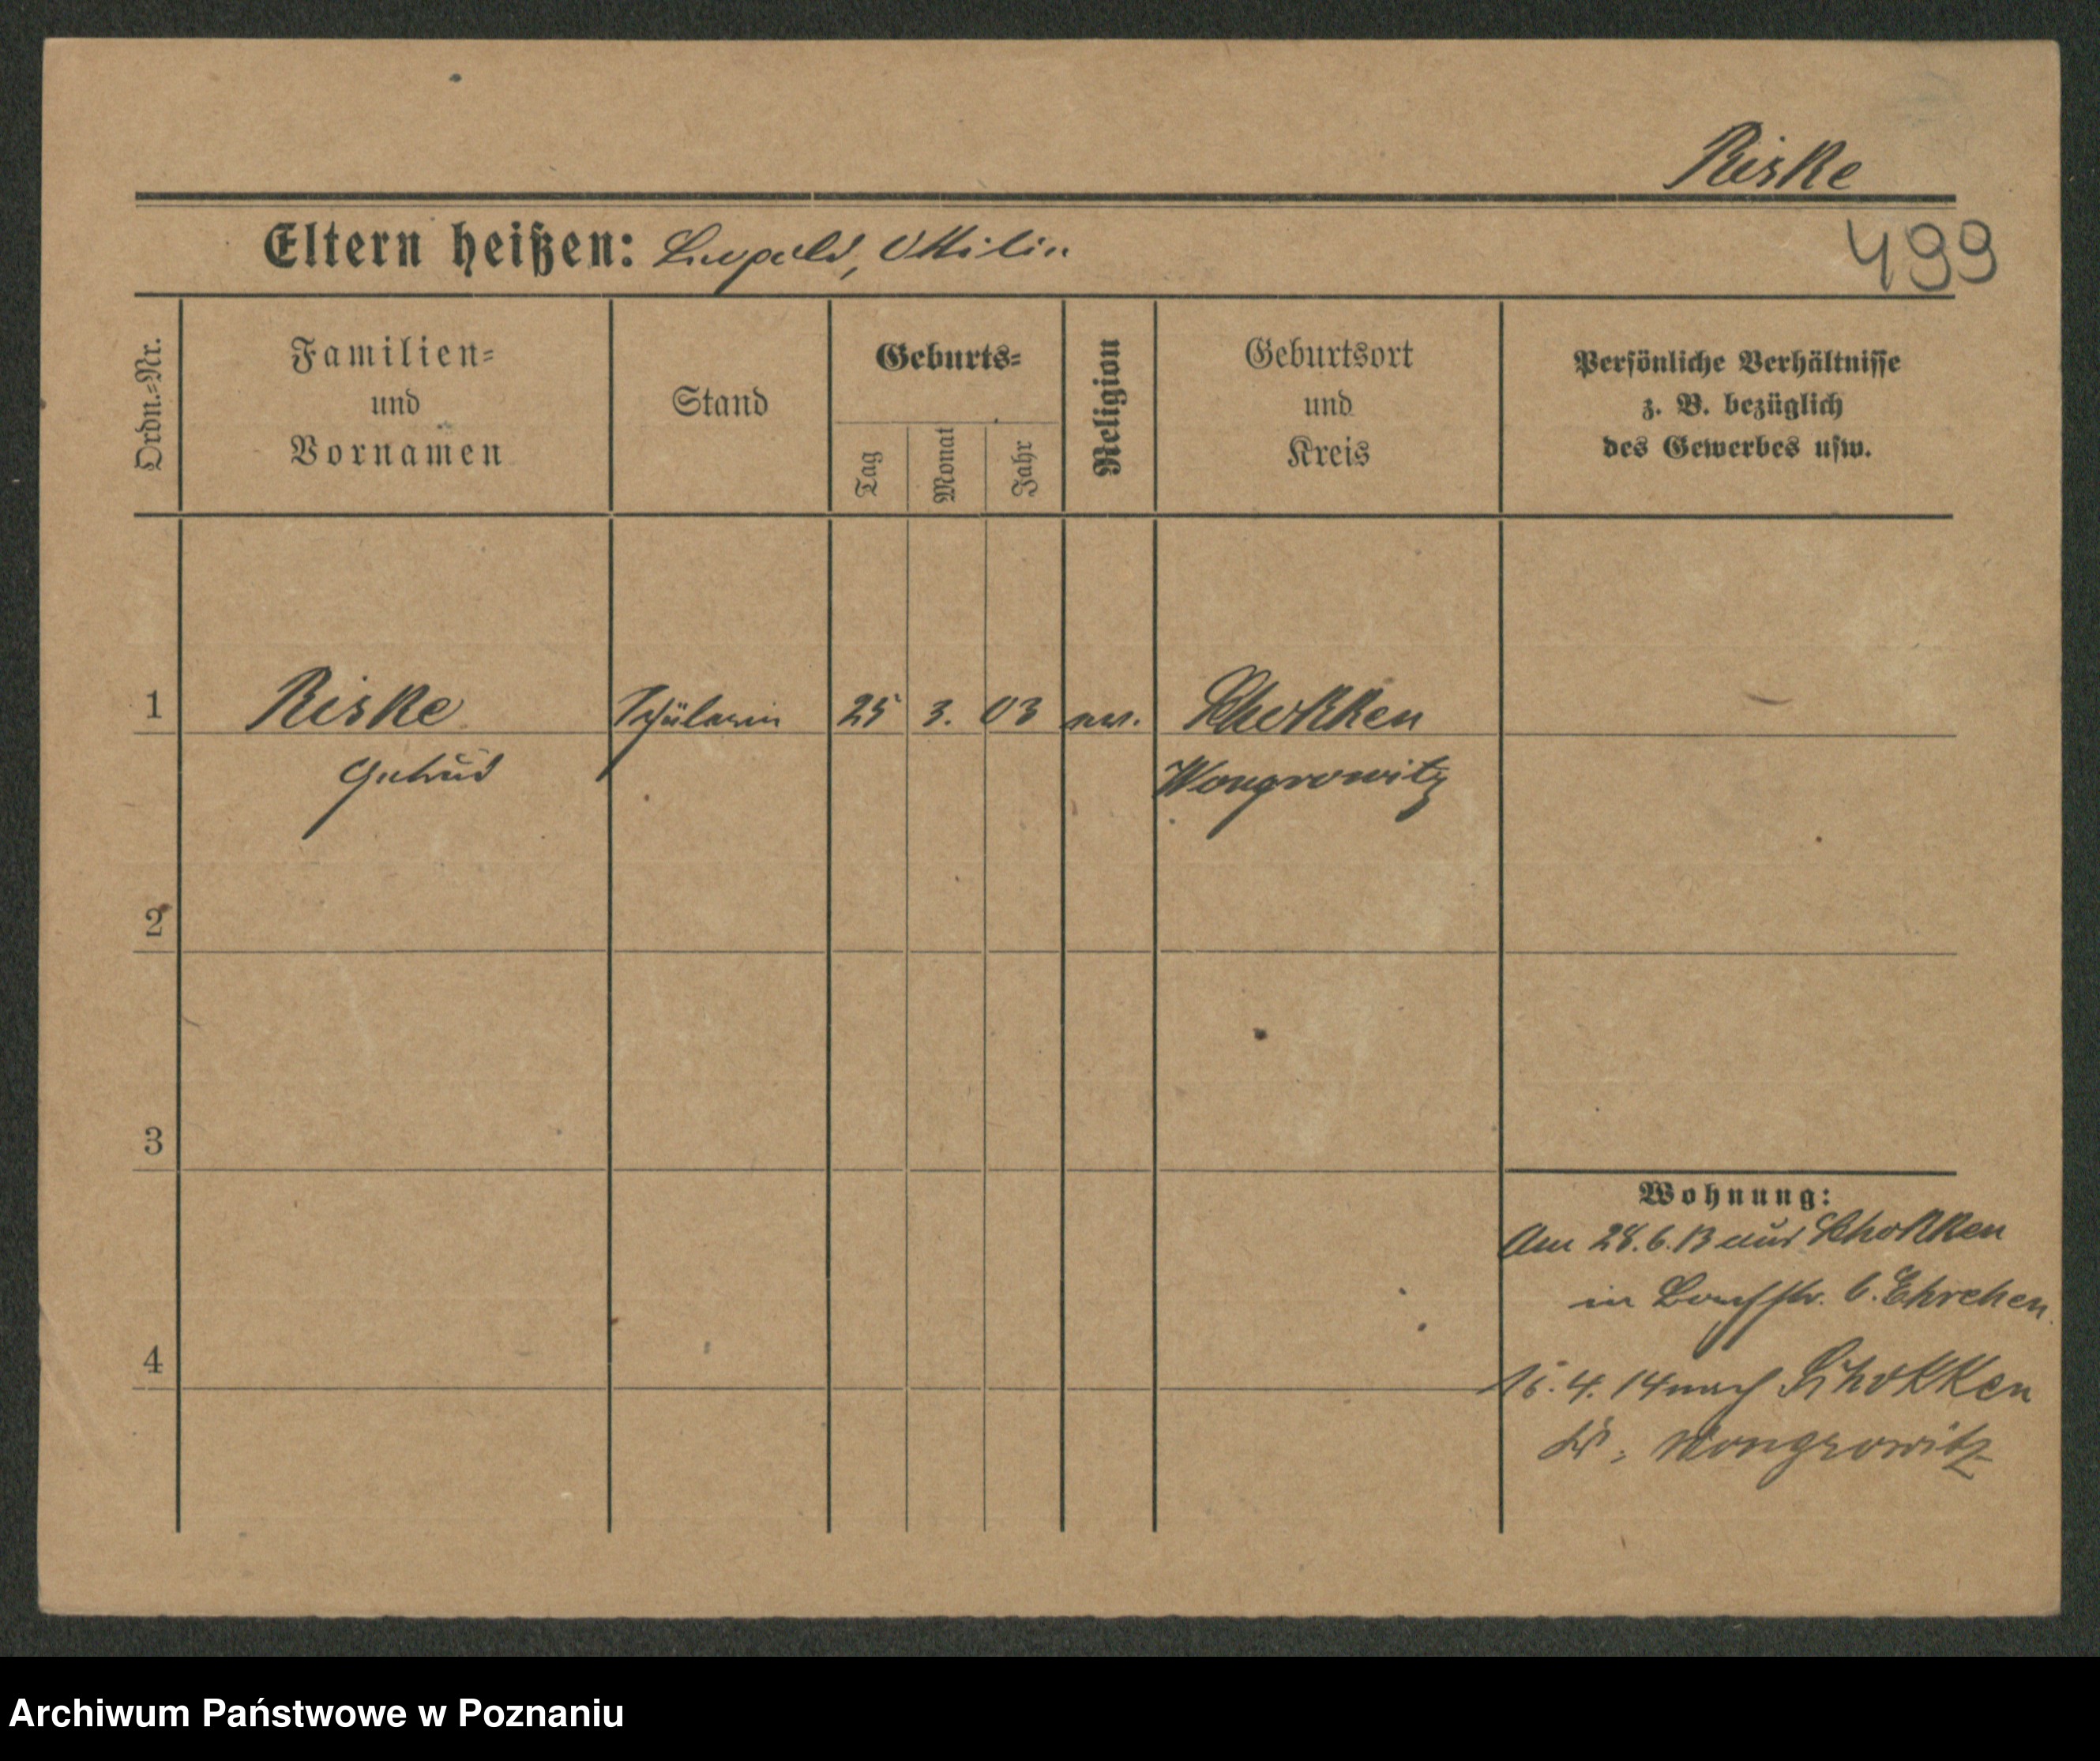 Riske
Eltern heißen: Leopold, Ottilie
499
Ordn.-Nr.
Familien-
und
Vornamen
Stand
Geburts-
Tag
Monat
Jahr
Religion
Geburtsort
und
Kreis
Persönliche Verhältnisse
z. B. bezüglich
des Gewerbes usw.
1
Riske
Schülerin
25
3.
03
ev.
Schokken
Gertrud
Wongrowitz
2
3
4
Wohnung:
Am 28.6.13 aus Schokken
in b. Ehrchen
15.4.14 nach Schokken
Kr. Wongrowitz
Archiwum Państwowe w Poznaniu